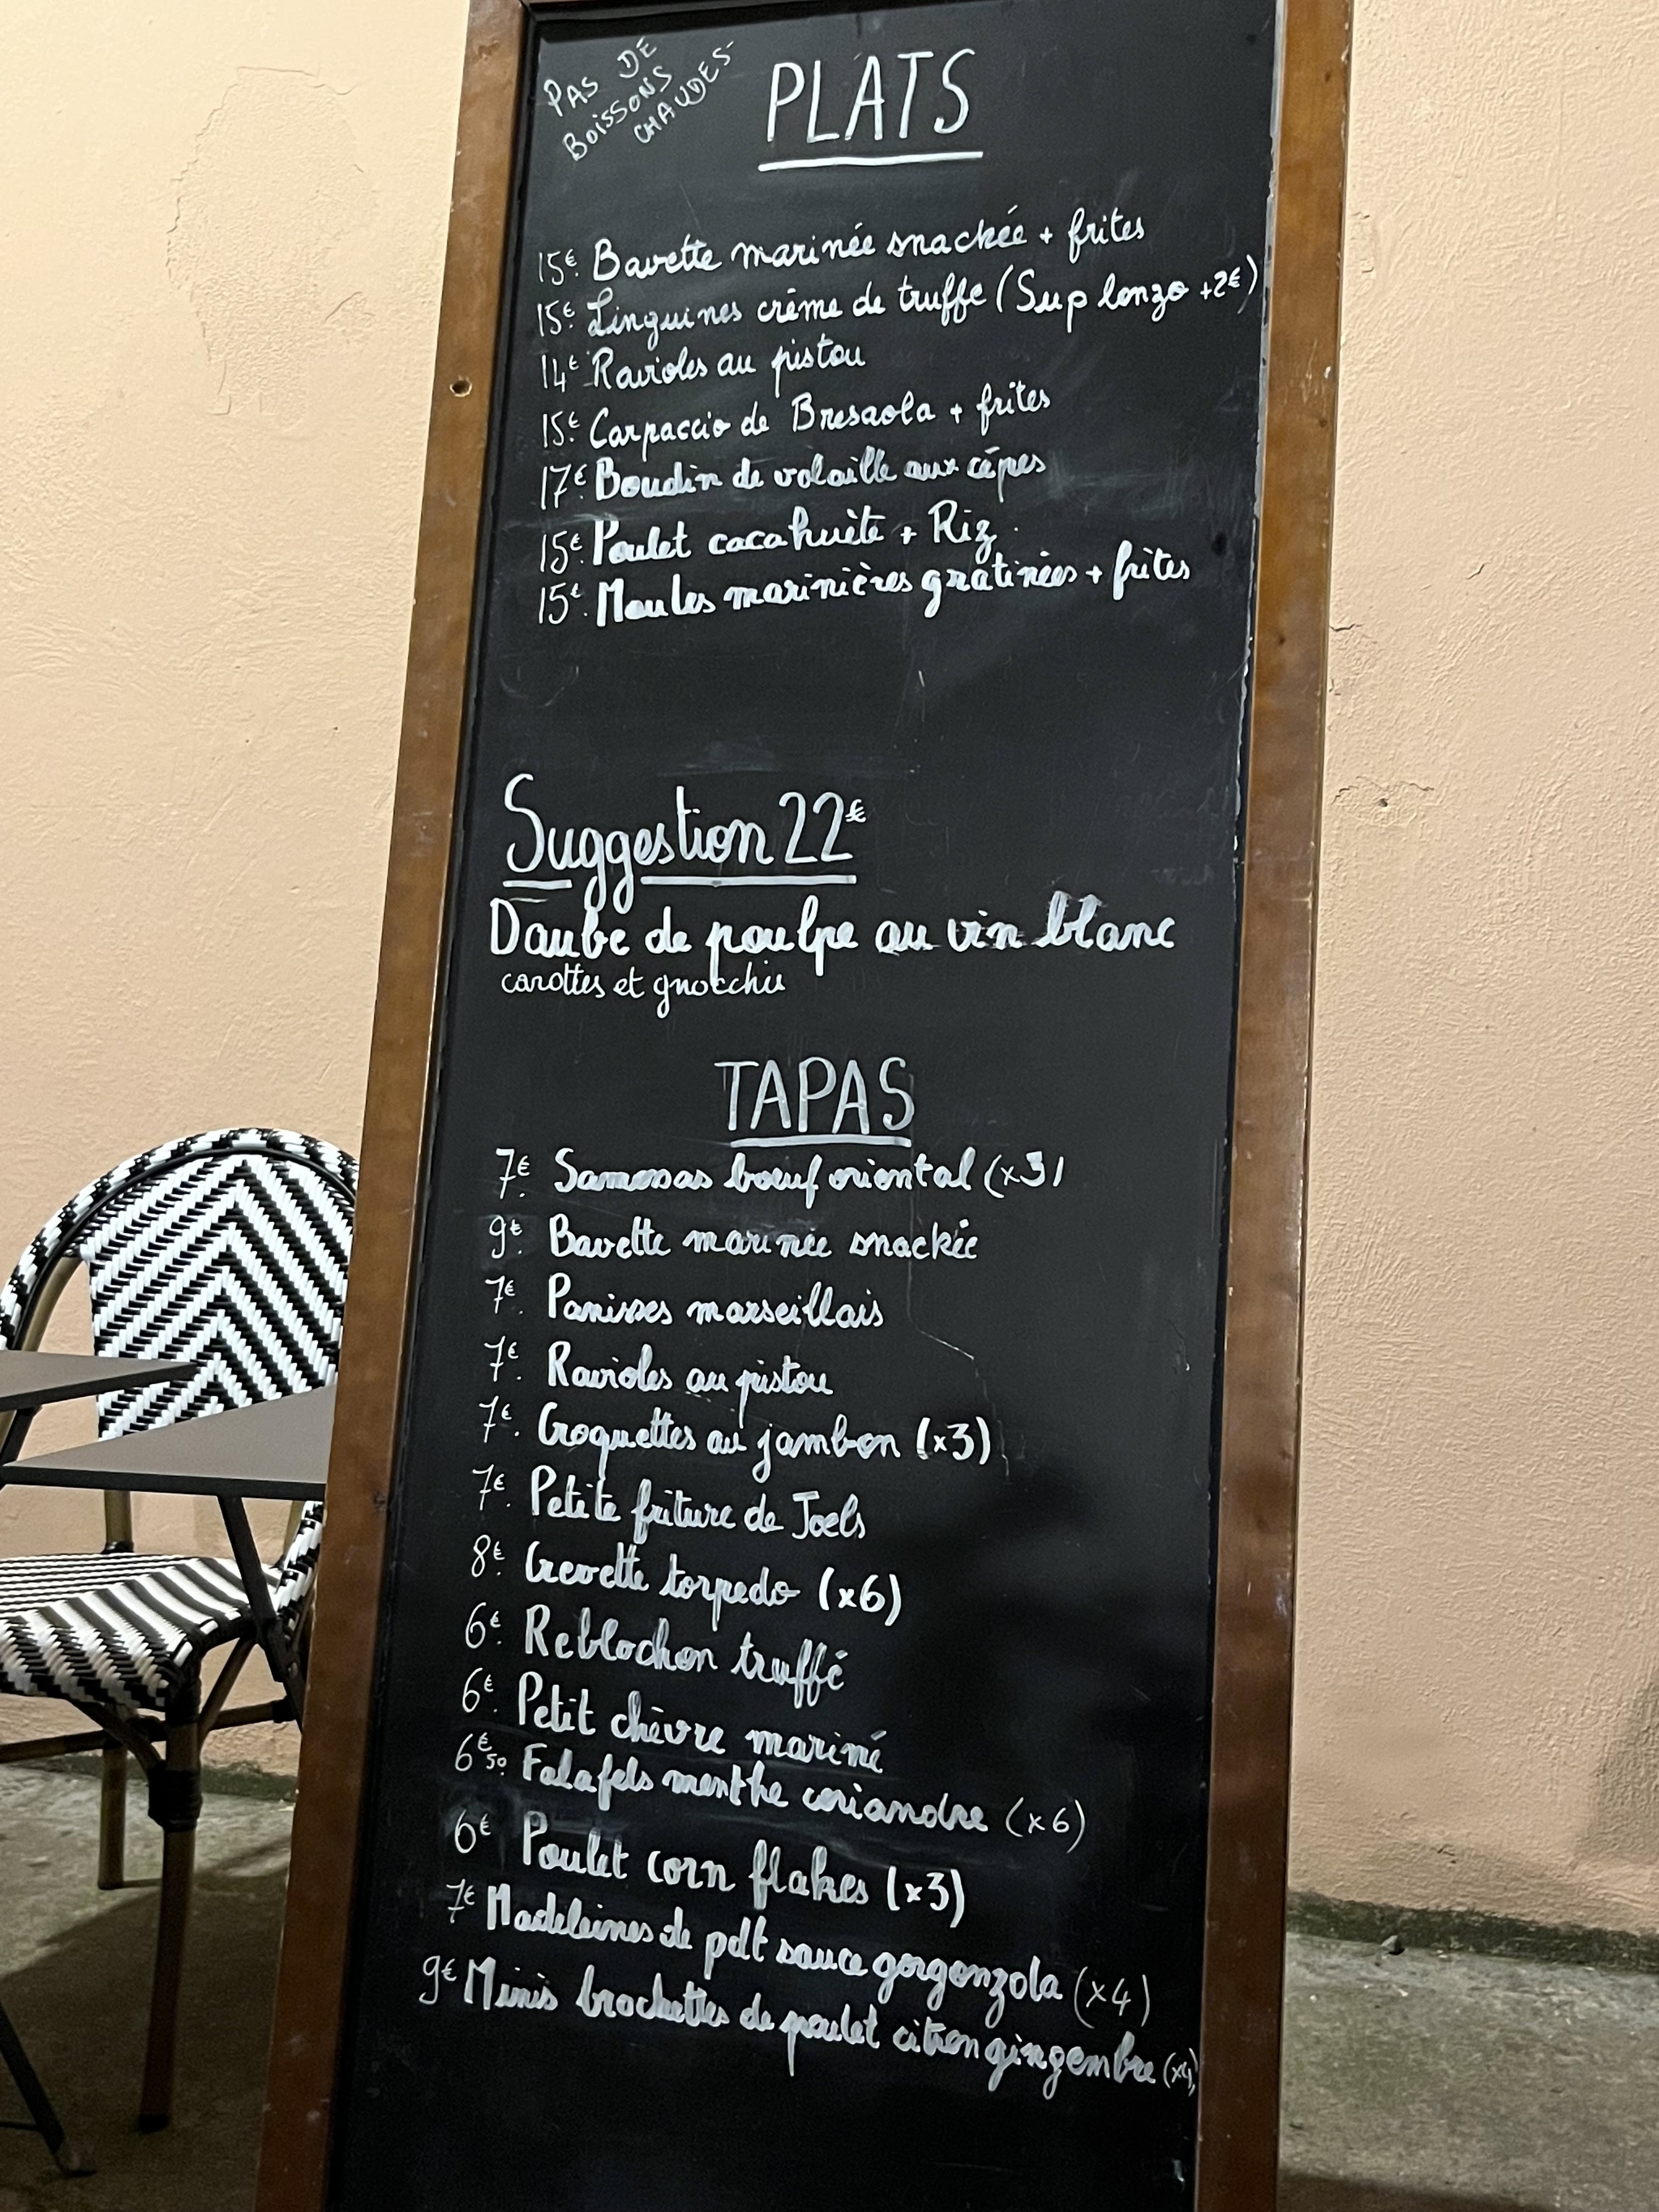 PAS DE
BOISSONS
CHAUDES
PLATS
15€. Bavette marinée snackée + frites
15€. Linguines crème de truffe (Sup lonzo +2€)
14€. Ravioles au pistou
15€. Carpaccio de Bresaola + frites
17€. Boudin de volaille aux cêpes
15€. Poulet cacahuète + Riz
15€. Moules marinières gratinées + frites
Suggestion 22€
Daube de poulpe au vin blanc
carottes et gnocchis
TAPAS
7€. Samossas boeuf oriental (x3)
9€. Bavette marinée snackée
7€. Panisses marseillais
7€. Ravioles au pistou
7€. Croquettes au jambon (x3)
7€. Petite friture de Joels
8€. Crevette torpedo (x6)
6€. Reblochon truffé
6€. Petit chèvre mariné
6€50. Falafels menthe coriandre (x6)
6€ Poulet corn flakes (x3)
7€ Madeleines de pdt sauce gorgonzola (x4)
9€ Minis brochettes de poulet citron gingembre (x4)